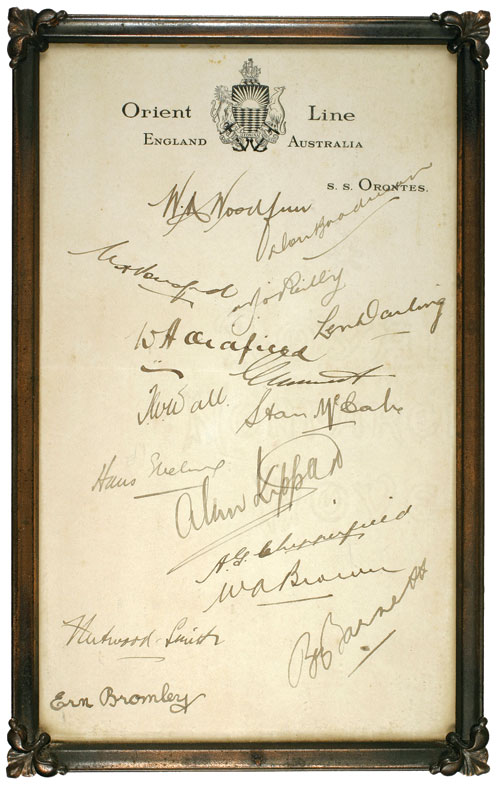 Orient Line
ENGLAND AUSTRALIA
S. S. ORONTES.
W.M Woodfull
Don Bradman
W.J. O'Reilly
Len Darling
W A Oldfield
T.W. Wall.
Stan McCabe
Hans Ebeling
Alan Kippax
A. G. Chipperfield
W A Brown
B A Barnett
Fleetwood-Smith
Ern Bromley